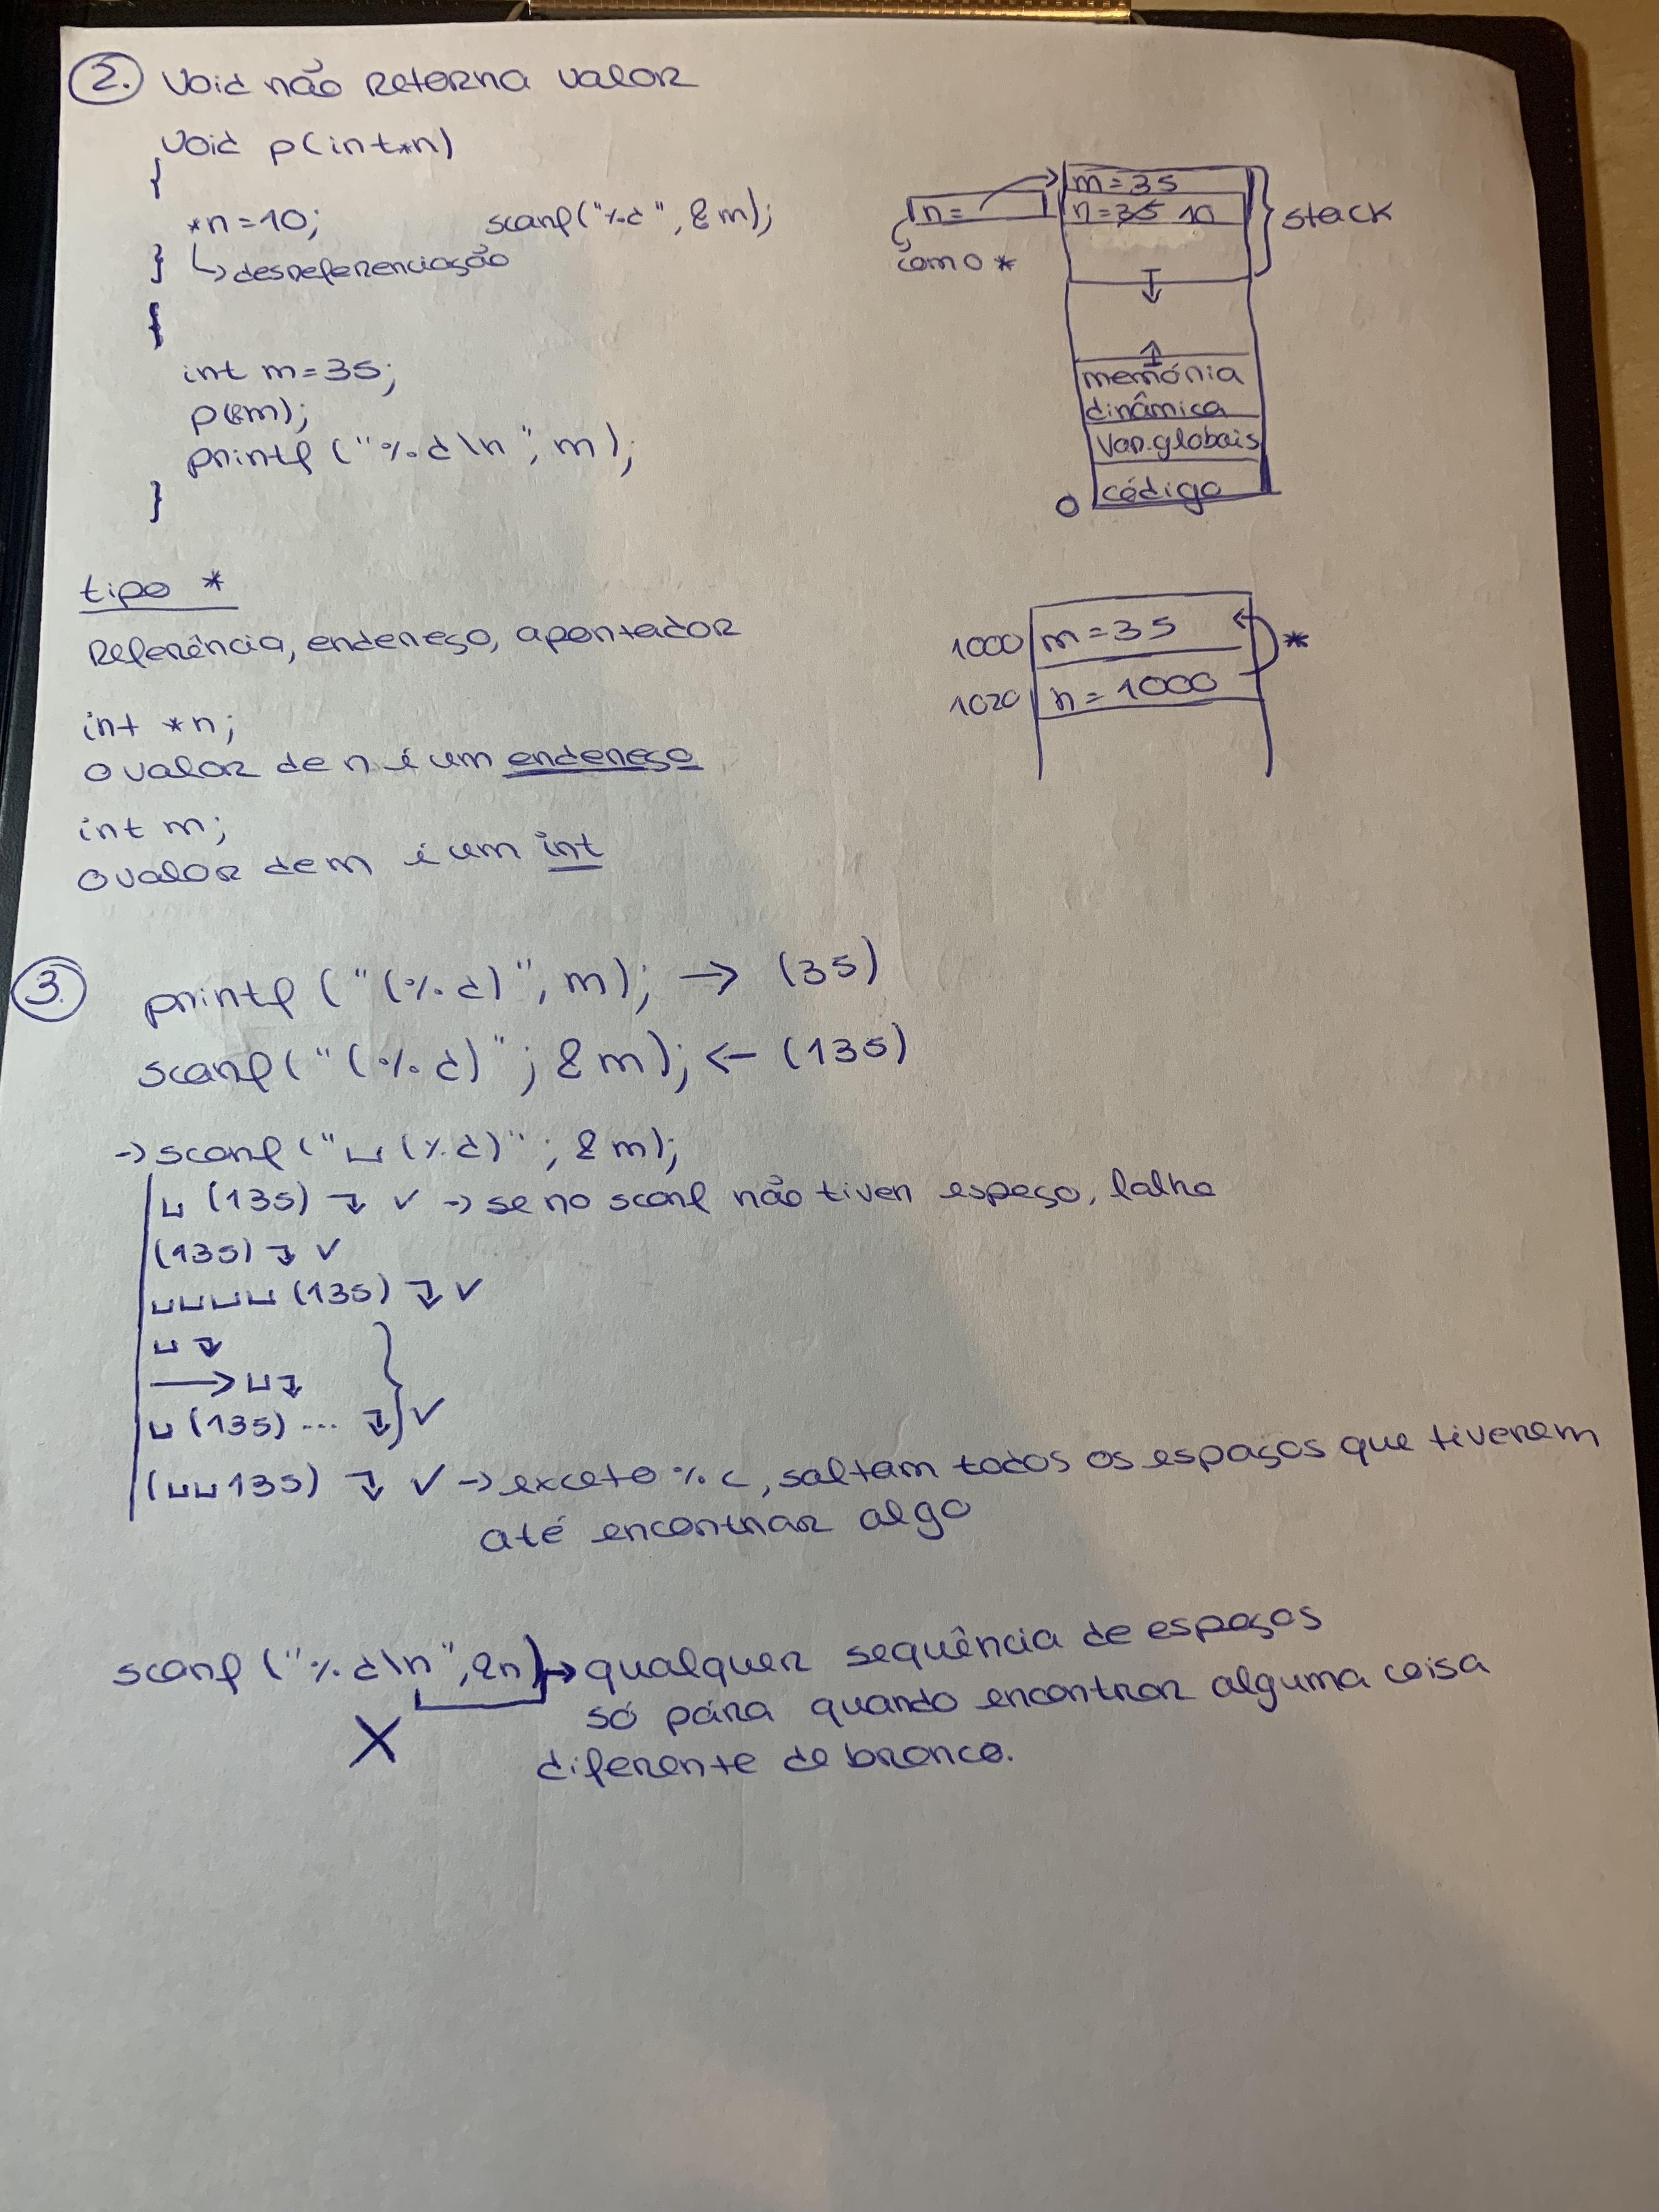 2. void não retorna valor
void p(int*n)
{
*n=10;
scanf("%d", &m);
} ↳ desreferenciação
{
int m=35;
p(&m);
printf("%d\n", m);
}
m=35
n=
n=35 10
stack
com o *
memória
dinâmica
Var.globais
0 código
tipo *
Referência, endereço, apontador
int *n;
o valor de n é um endereço
int m;
o valor de m é um int
1000 m=35
*
1020 n=1000
3. printf("(%d)", m); → (35)
scanf("(%d)"; &m); ← (135)
→ scanf("␣(%d)"; &m);
␣(135) ↴ ✓ → se no scanf não tiver espaço, falha
(135) ↴ ✓
␣␣␣␣(135) ↴ ✓
␣ ↴
⟶ ␣↴
␣(135) ... ↴ } ✓
(␣␣135) ↴ ✓ → exceto %c, saltam todos os espaços que tiverem
até encontrar algo
scanf("%d\n", &n) → qualquer sequência de espaços
X
só pára quando encontrar alguma coisa
diferente de branco.